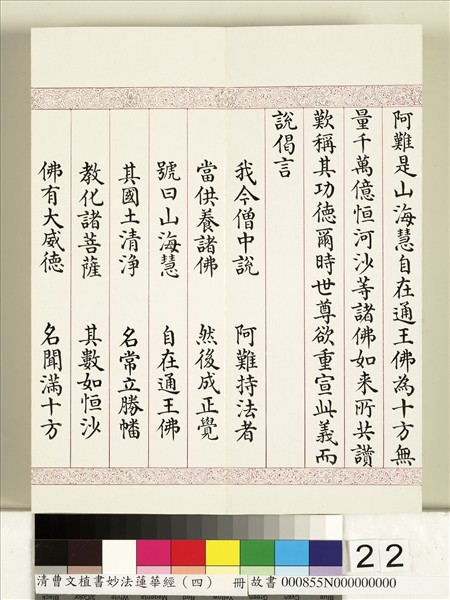 阿難是山海慧自在通王佛為十方無
量千萬億恒河沙等諸佛如来所共讚
歎稱其功德爾時世尊欲重宣此義而
說偈言
我今僧中說 阿難持法者
當供養諸佛 然後成正覺
號曰山海慧 自在通王佛
其國土清淨 名常立勝幡
教化諸菩薩 其數如恒沙
佛有大威德 名聞滿十方
22
清曹文植書妙法蓮華經（四） 冊 故書 000855N000000000